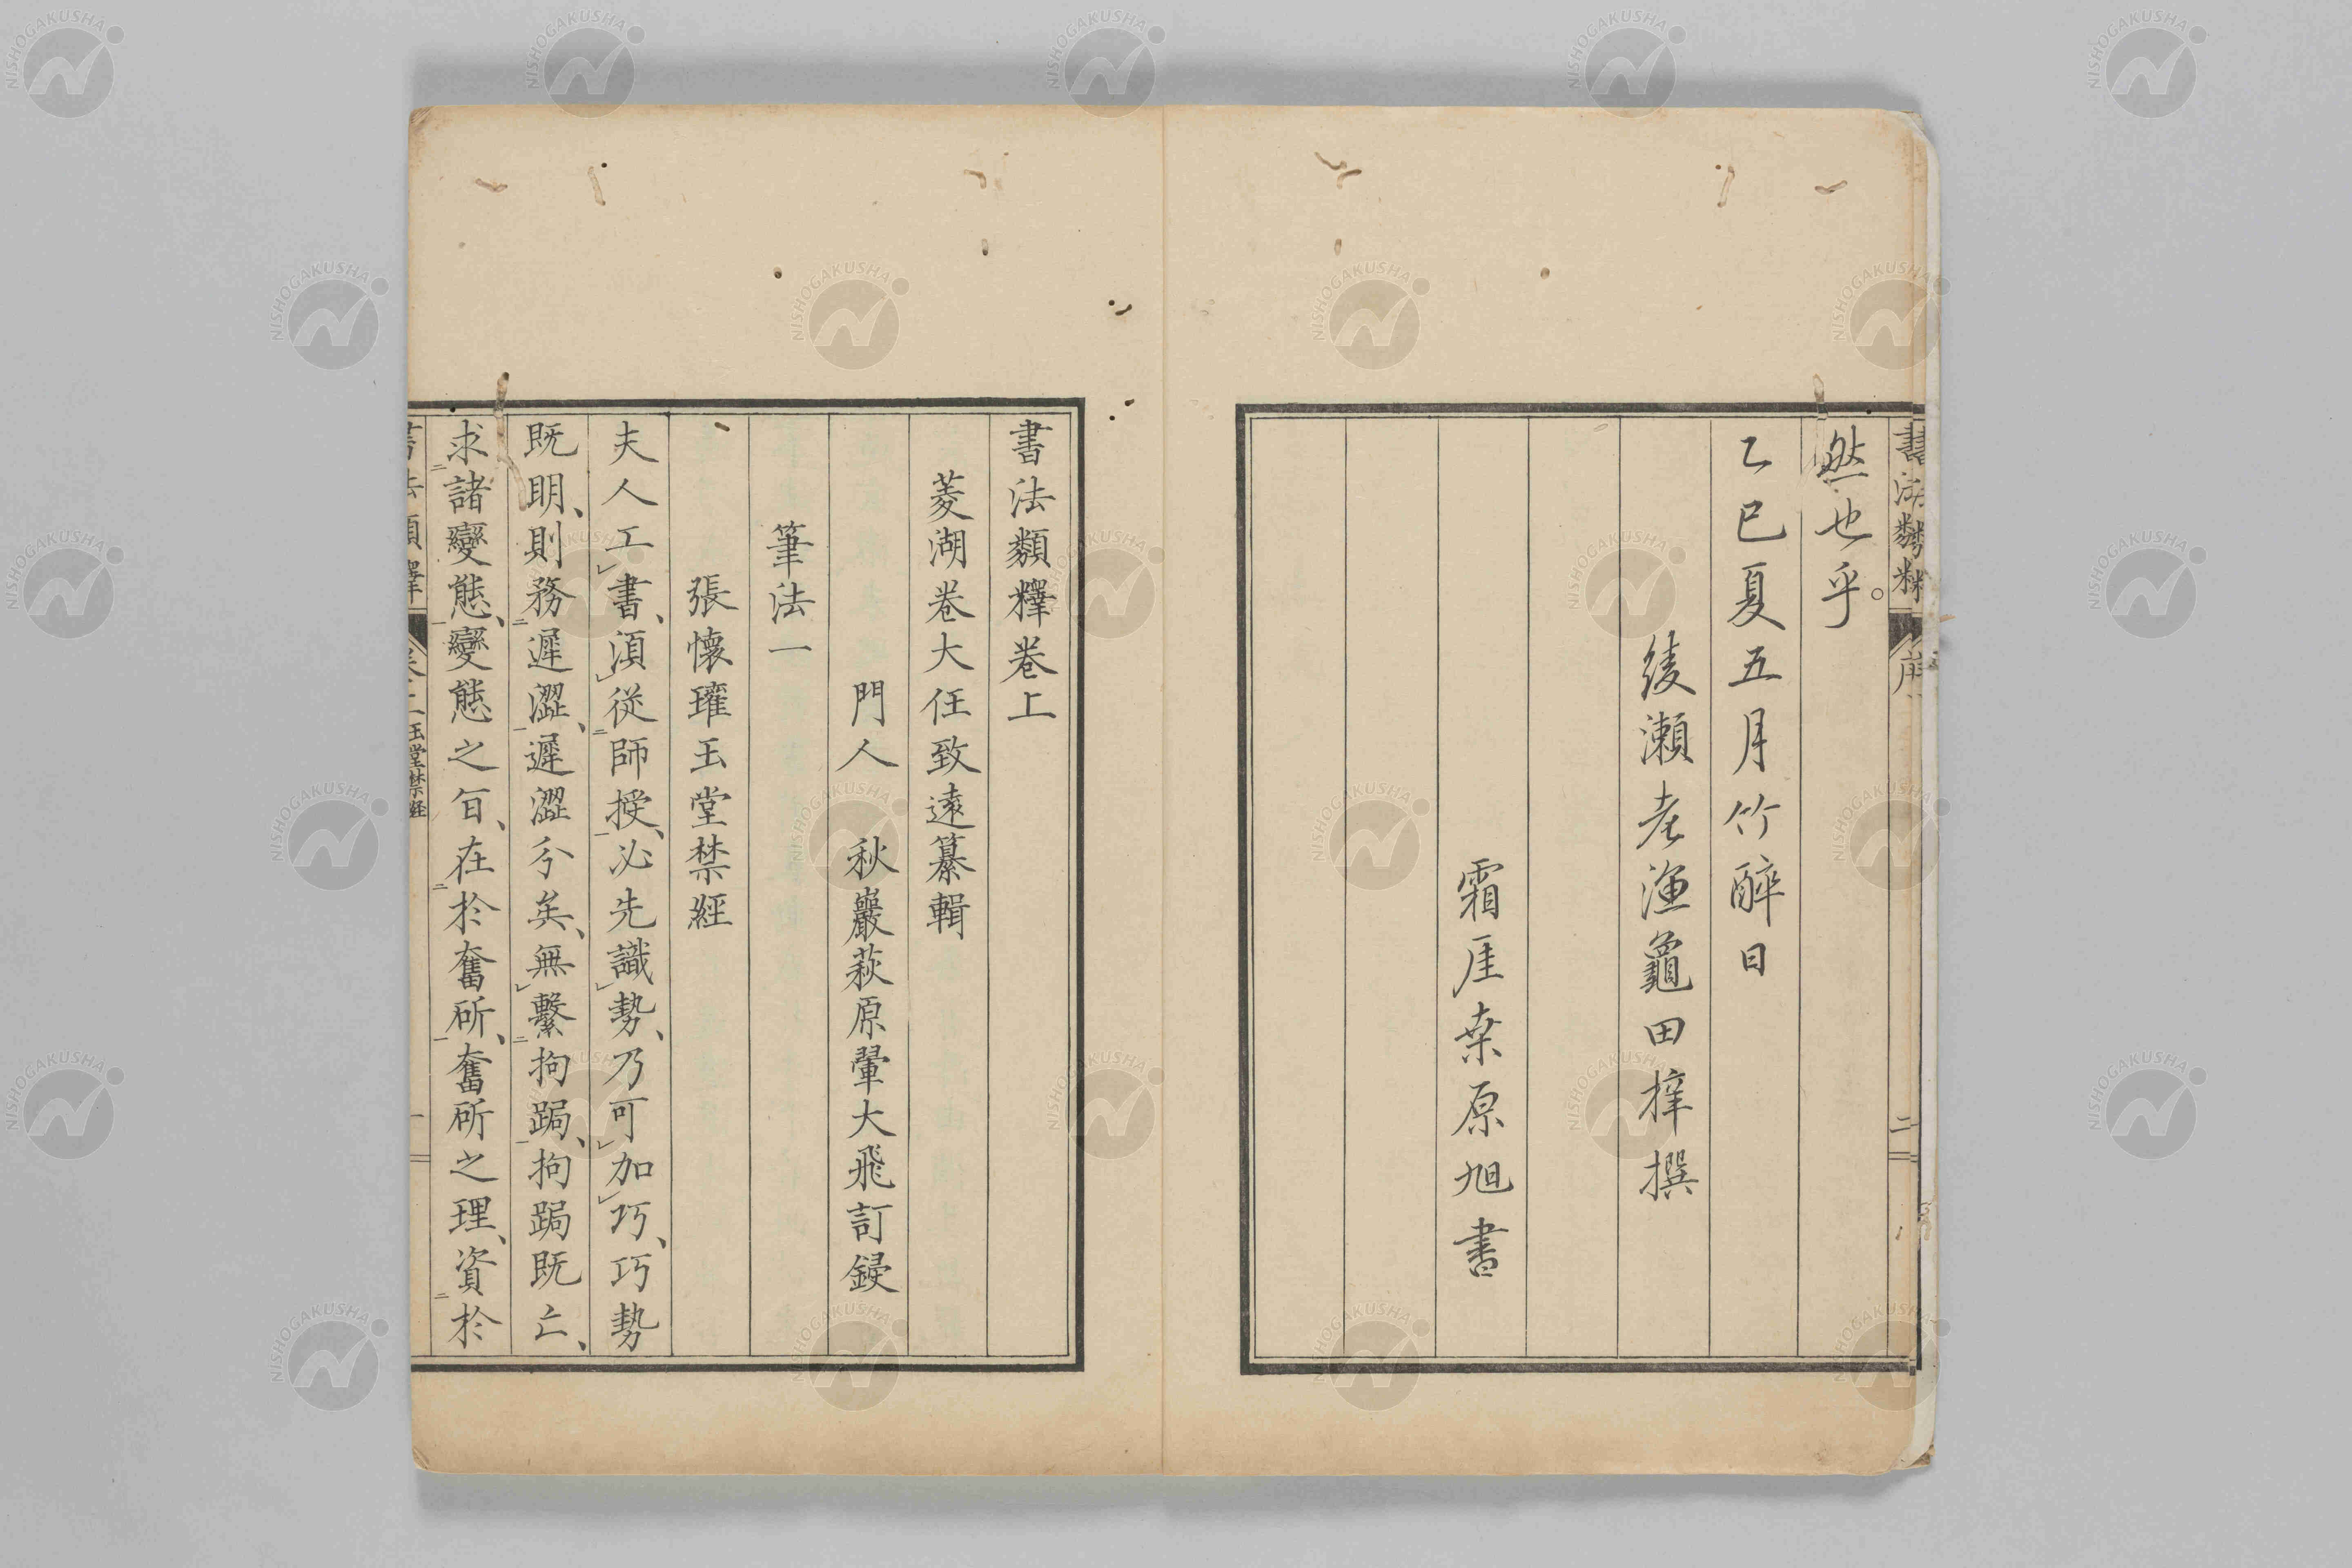 然也乎。
乙巳夏五月竹醉日
綾瀬老漁龜田梓撰
霜厓桒原旭書
書法類釋卷上
菱湖卷大任致遠纂輯
門人 秋巖萩原翬大飛訂錽
筆法一
張懷瓘玉堂禁經
夫人工書、湏從師授、必先識勢、乃可加巧、巧勢
既明、則務遲澀、遲澀分矣、無繫拘跼、拘跼既亡、
求諸變態、變態之旨、在於奮斫、奮斫之理、資於
NISHOGAKUSHA